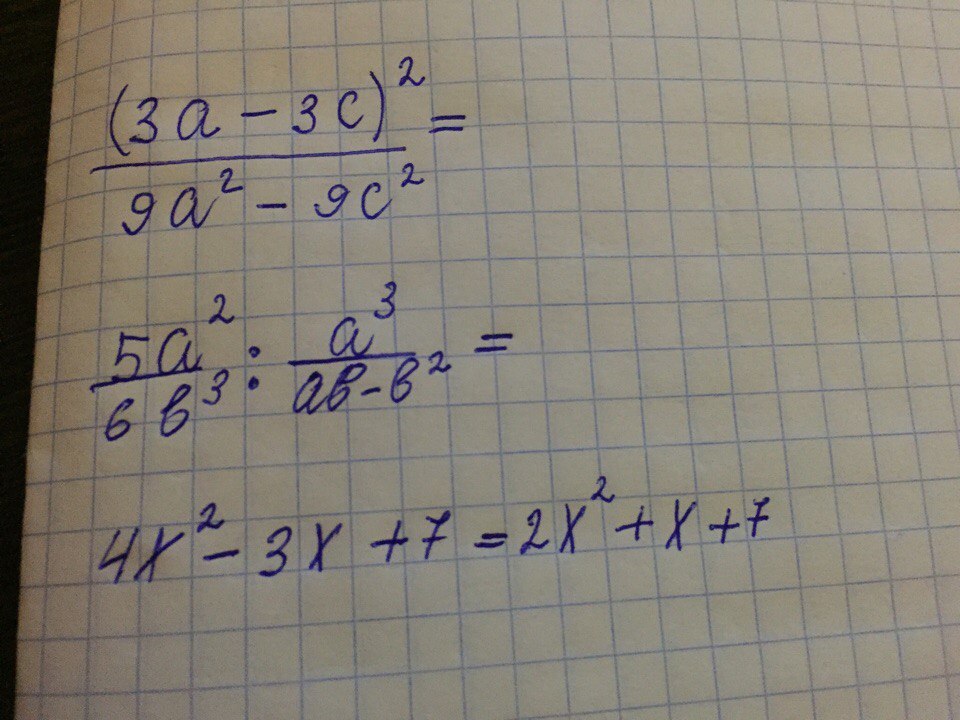 (3a - 3c)² / (9a² - 9c²) =
5a² / 6b³ : a³ / (ab - b²) =
4x² - 3x + 7 = 2x² + x + 7